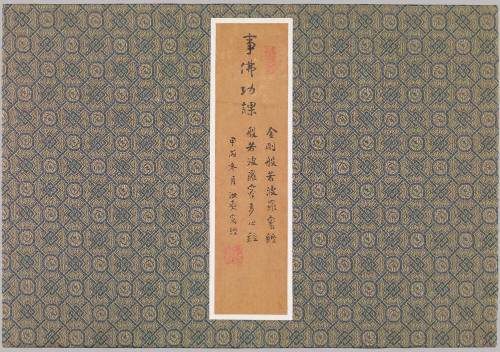 事佛功課
金剛般若波羅蜜經
般若波羅蜜多心經
甲冬月